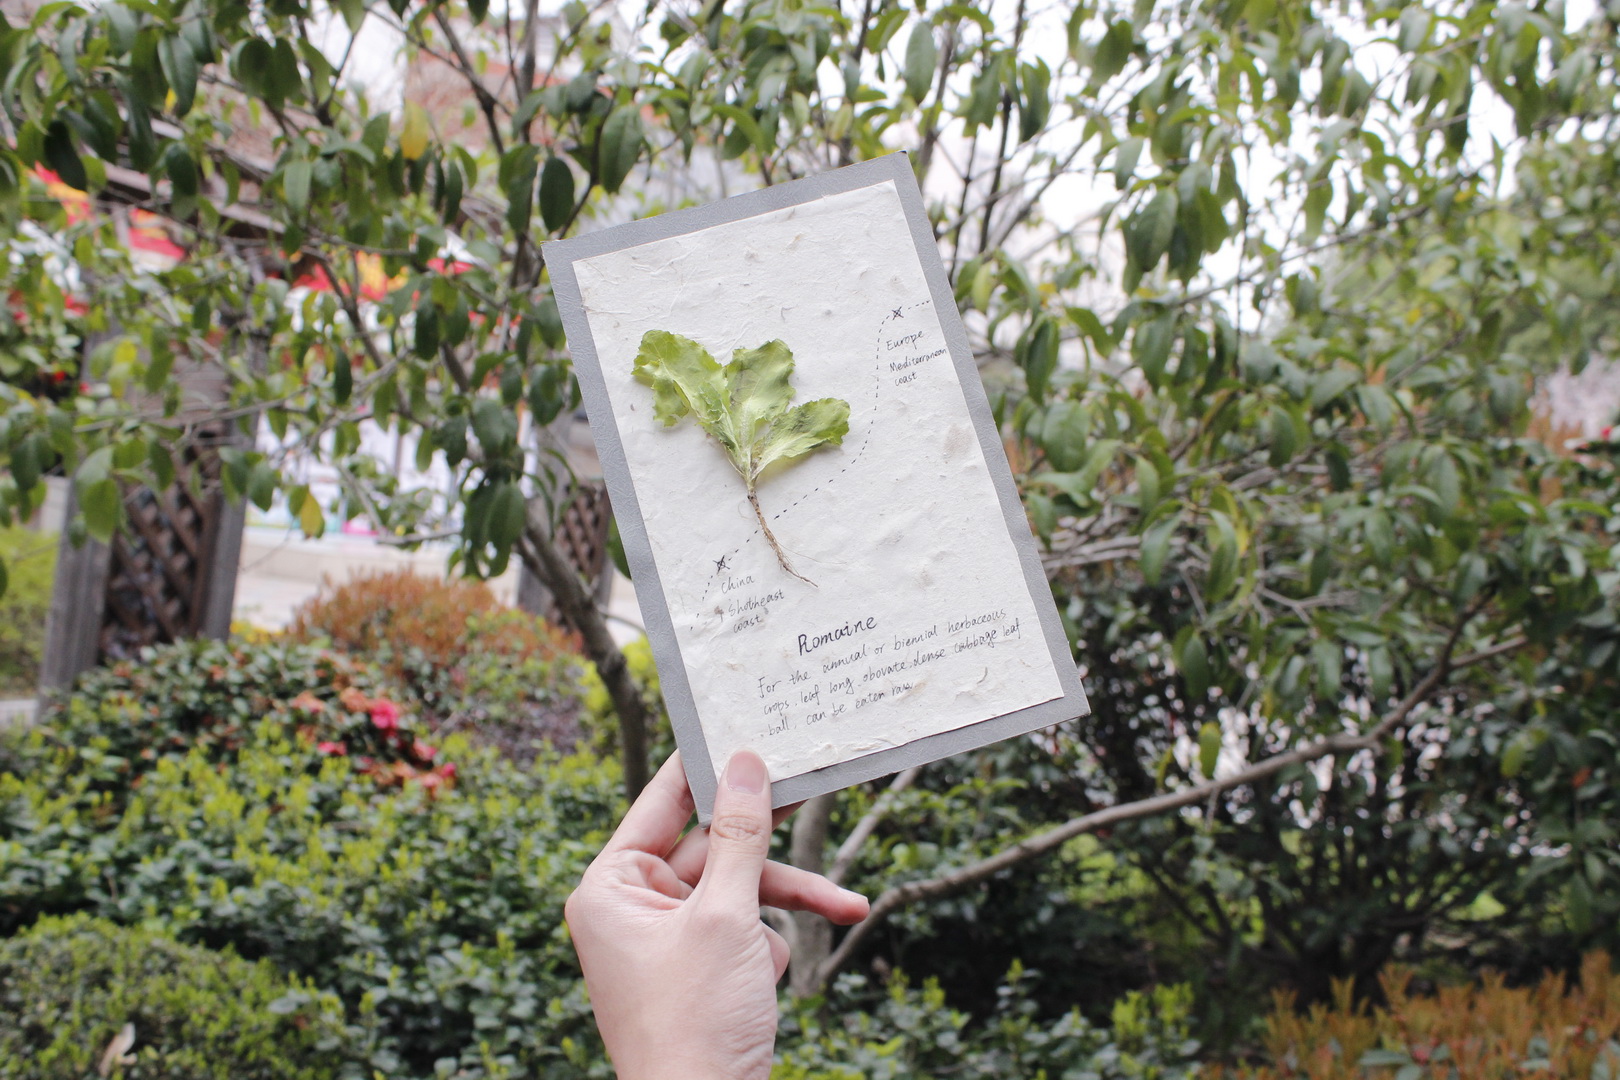 Europe
Mediterranean
coast
China
Shotheast
coast
Romaine
For the annual or biennial herbaceous
crops. leaf long obovate. dense cabbage leaf
ball. can be eaten raw.